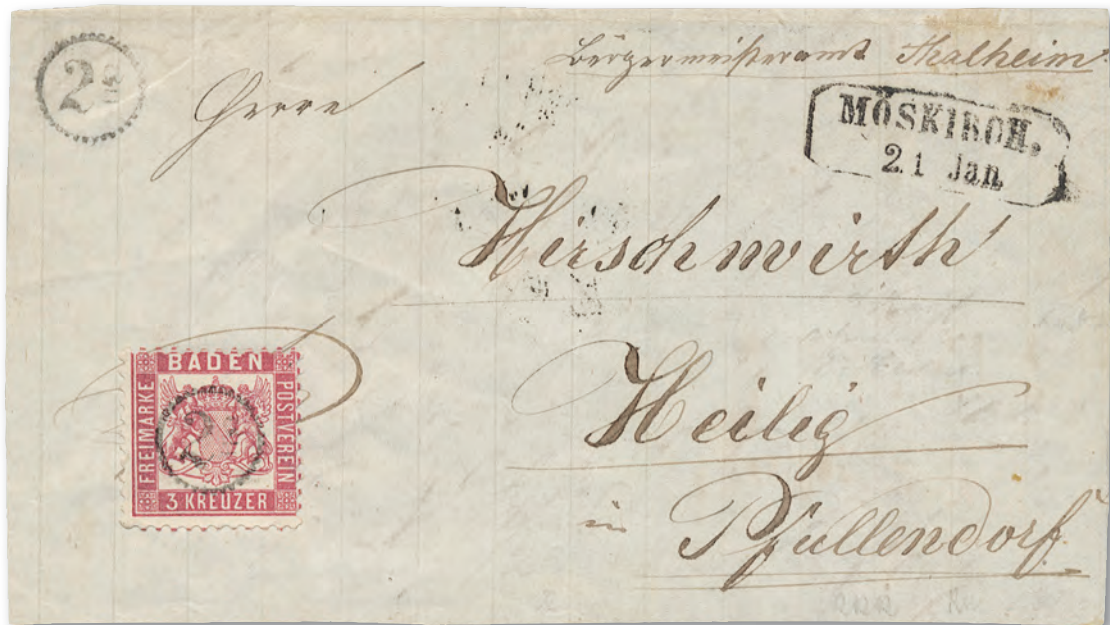 Bürgermeisteramt Thalheim.
2
Herrn
MÖSKIRCH.
21 Jan.
Hirschwirth
Heilig
in Pfullendorf.
BADEN
FREIMARKE
POSTVEREIN
3 KREUZER